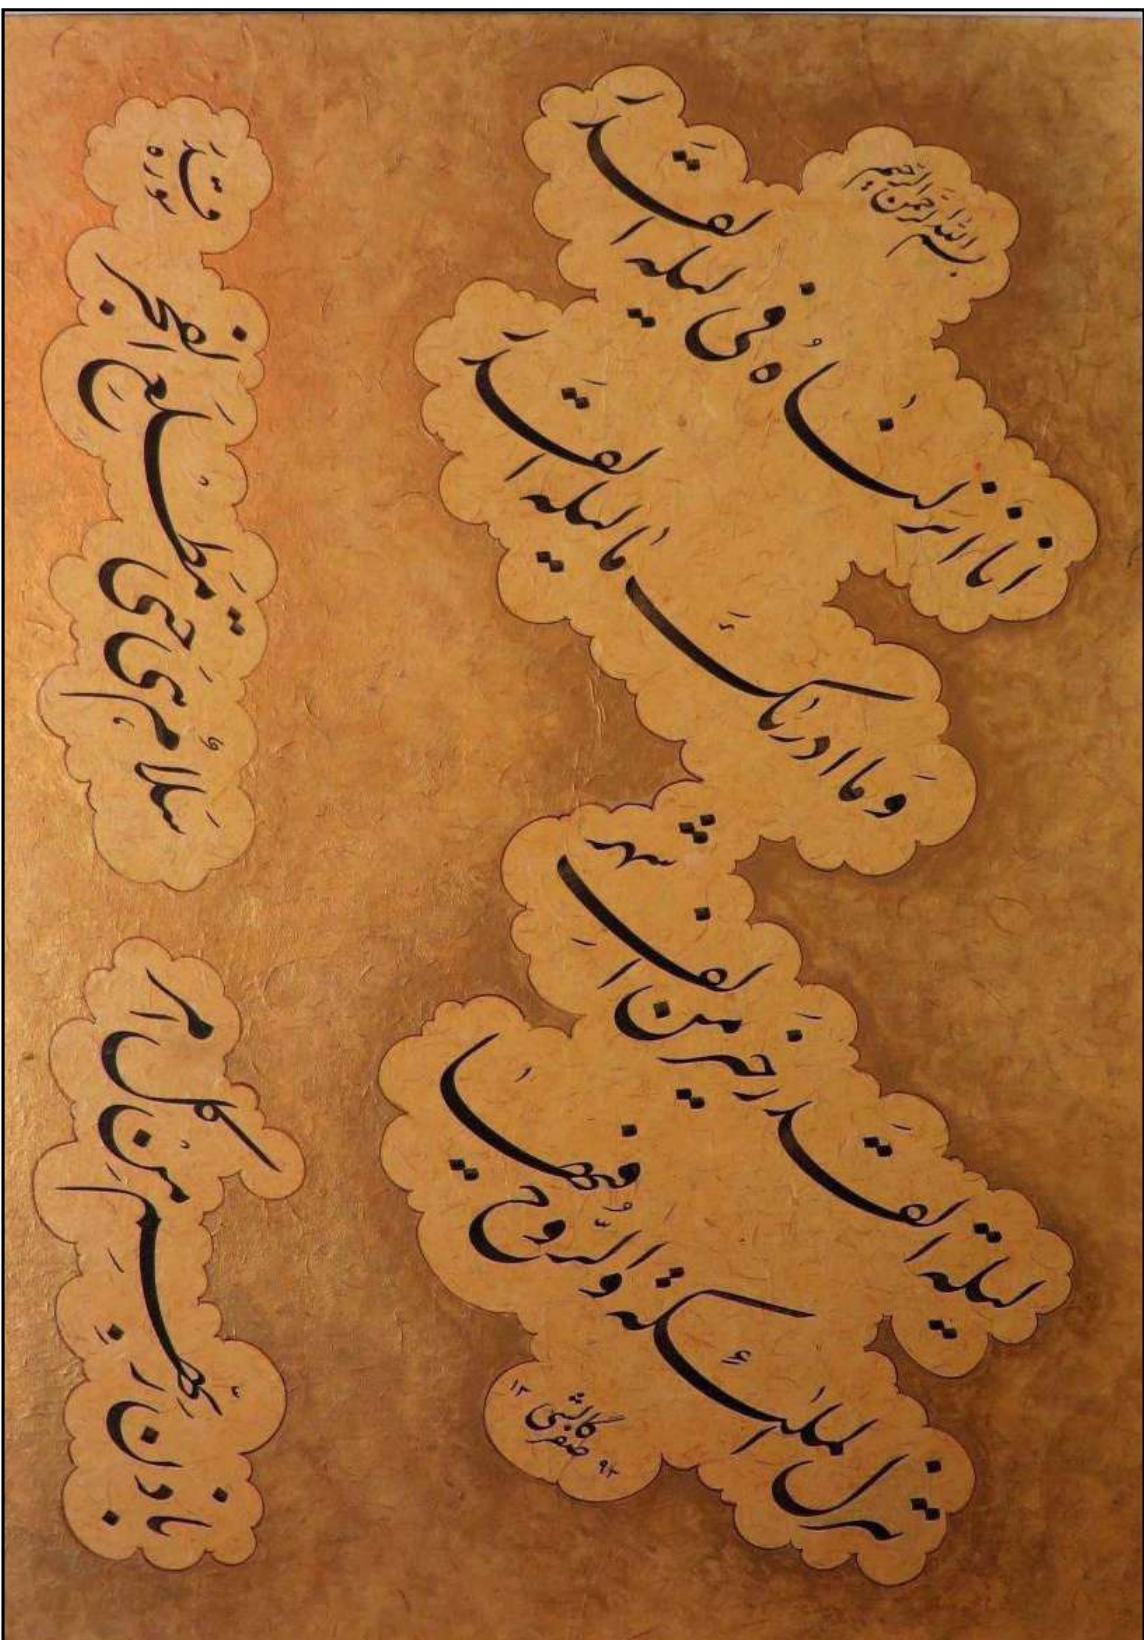 بسم الله الرحمن الرحیم
انا انزلناه فی لیله القدر
وَما ادریک ما لیله القدر
لیلة القدر خیر من الف شهر
تنزل الملئکة والرُّوح فیها
باذن ربهم من کل امر
سَلامٌ هی حَتی مَطْلَعِ الفَجر
سوره قدر